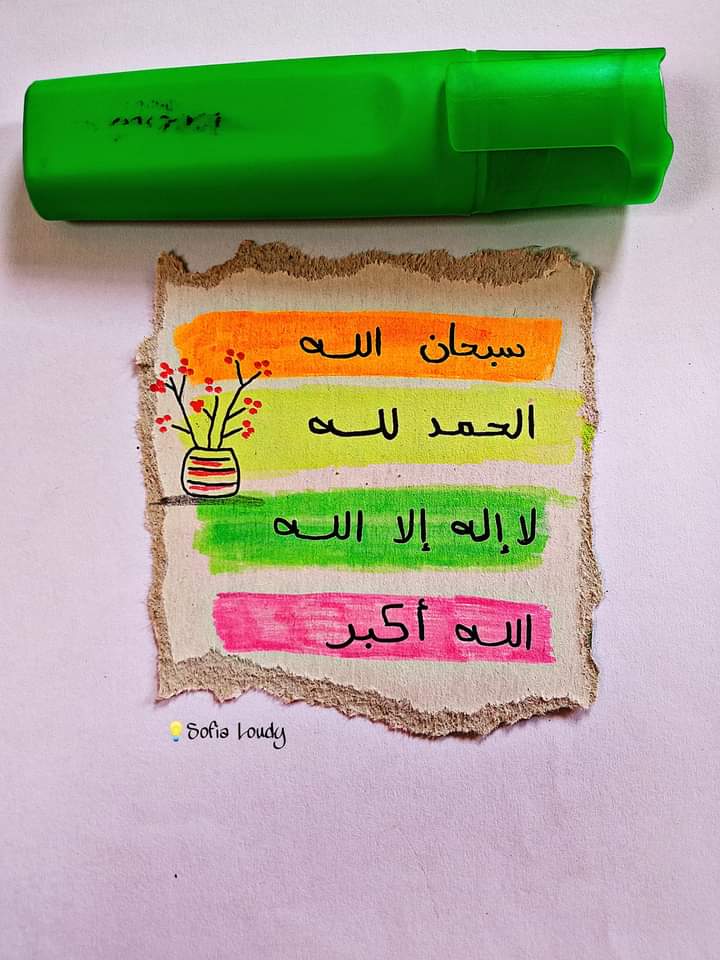 سبحان الله
الحمد لله
لا إله إلا الله
الله أكبر
Sofia Loudy